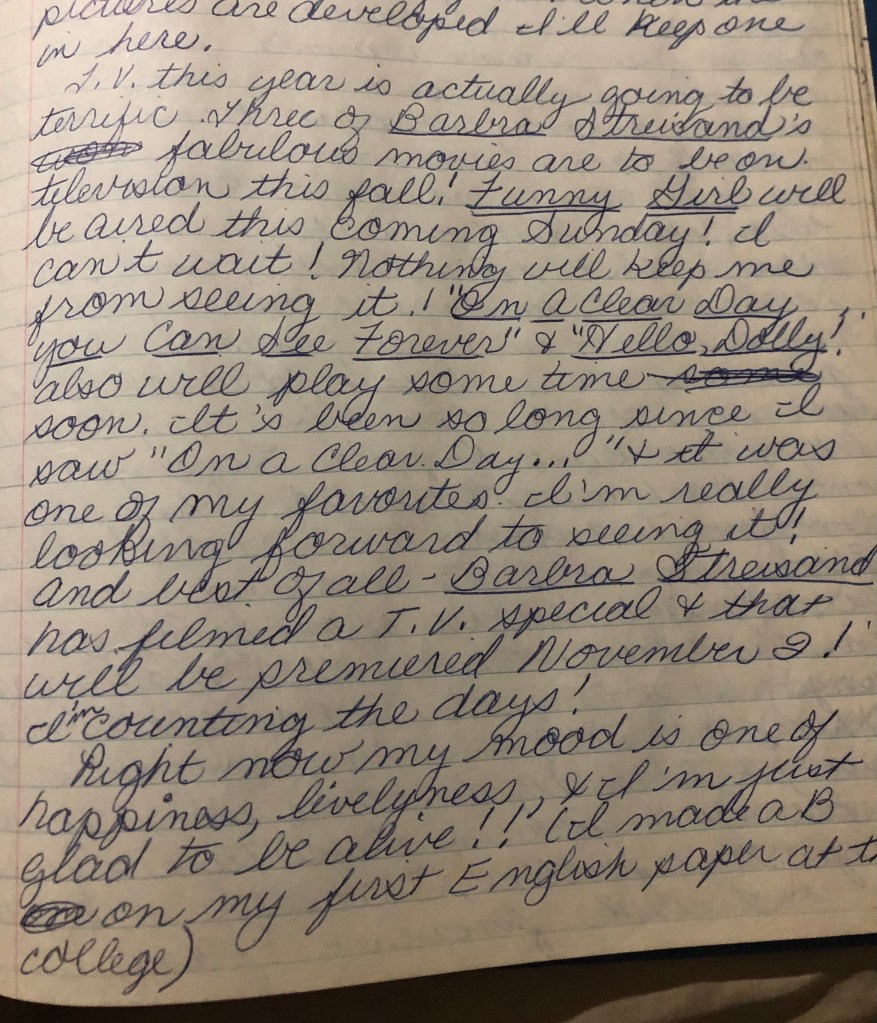 pictures are developed I'll keep one
in here.
T.V. this year is actually going to be
terrific. Three of Barbra Streisand's
fabulous movies are to be on
television this fall! Funny Girl will
be aired this coming Sunday! I
can't wait! Nothing will keep me
from seeing it! "On A Clear Day
you Can See Forever" & "Hello, Dolly!"
also will play some time some
soon. It's been so long since I
saw "On a Clear Day..." & it was
one of my favorites. I'm really
looking forward to seeing it!
And best of all - Barbra Streisand
has filmed a T.V. special & that
will be premiered November 2!
I'm counting the days!
Right now my mood is one of
happiness, livelyness, & I'm just
glad to be alive!!! (I made a B
on my first English paper at t
college)